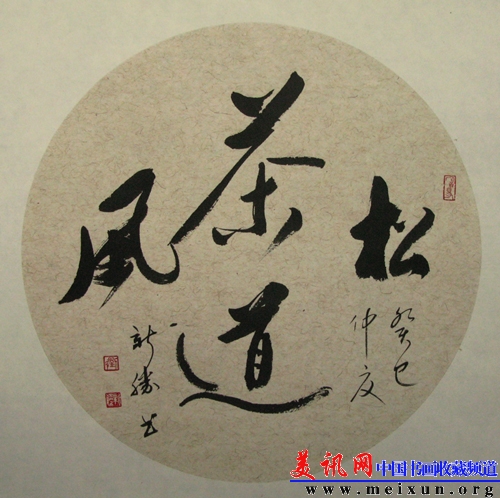 松
癸巳
仲夏
茶道
风
新胜书
美讯网 中国书画收藏频道
www.meixun.org